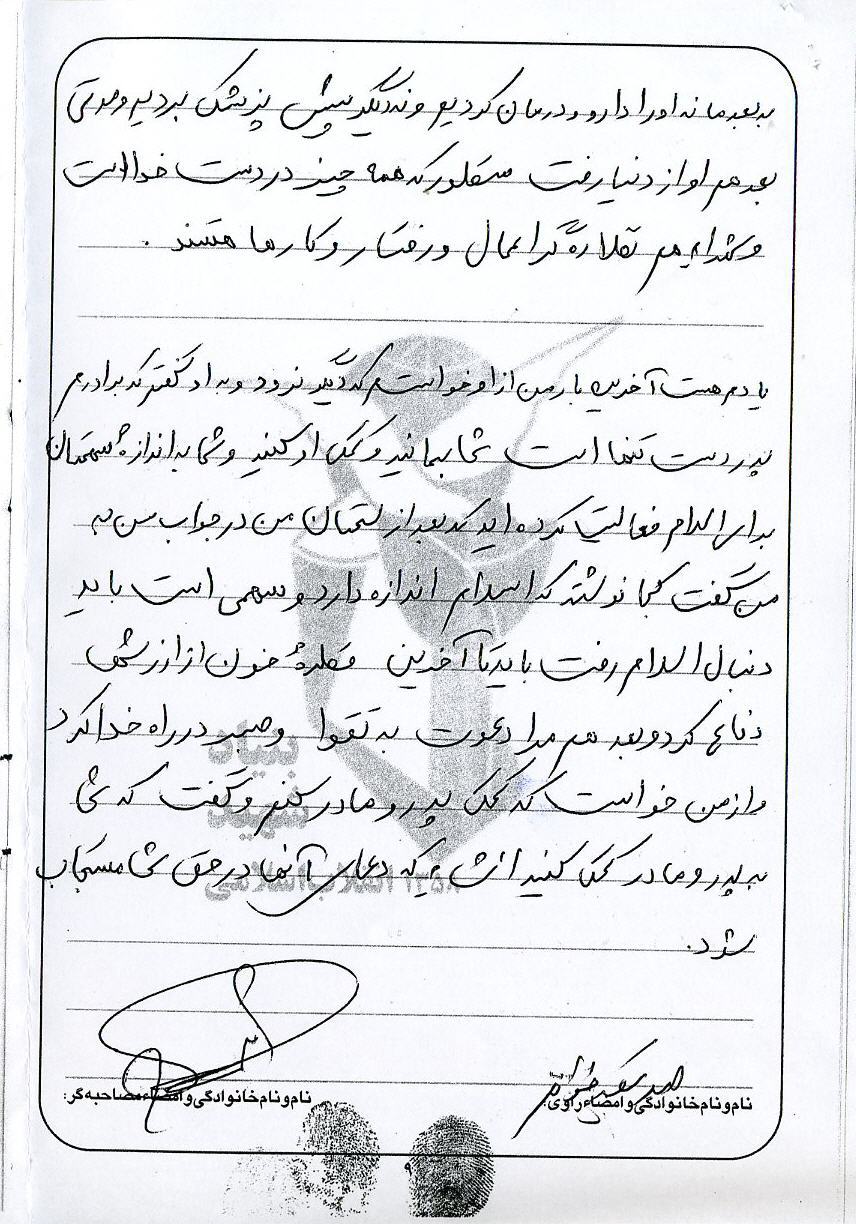 به بعد ما نه او را دارو و درمان کردیم و نه دیگر پیش پزشک بردیم و مدتی
بعد هم او از دنیا رفت همه چیز در دست خدا است
و شهدا هم نظاره گر اعمال و رفتار و کار ما هستند .
یادم هست آخرین بار من از او خواستم که دیگر نرود و به او گفتم که برادرم
پدر دست تنها است شما بمانید و کمک او کنید و شما به اندازهٔ سهمتان
برای اسلام فعالیت کرده اید که بعد از سخنان من در جواب من به
من گفت کجا نوشته که اسلام اندازه دارد و سهمی است باید
دنبال اسلام رفت باید تا آخرین قطرهٔ خون از ارزشها
دفاع کرد و بعد هم مرا دعوت به تقوا و صبر در راه خدا کرد
و از من خواست که کمک پدر و مادر کنم و گفت که شما
به پدر و مادر کمک کنید انشاء که دعای آنها در حق شما مستجاب
شود.
بنیاد
شهید
انقلاب اسلامی ۱۳۵۸
نام و نام خانوادگی و امضاء راوی:
نام و نام خانوادگی و امضاء مصاحبه گر: